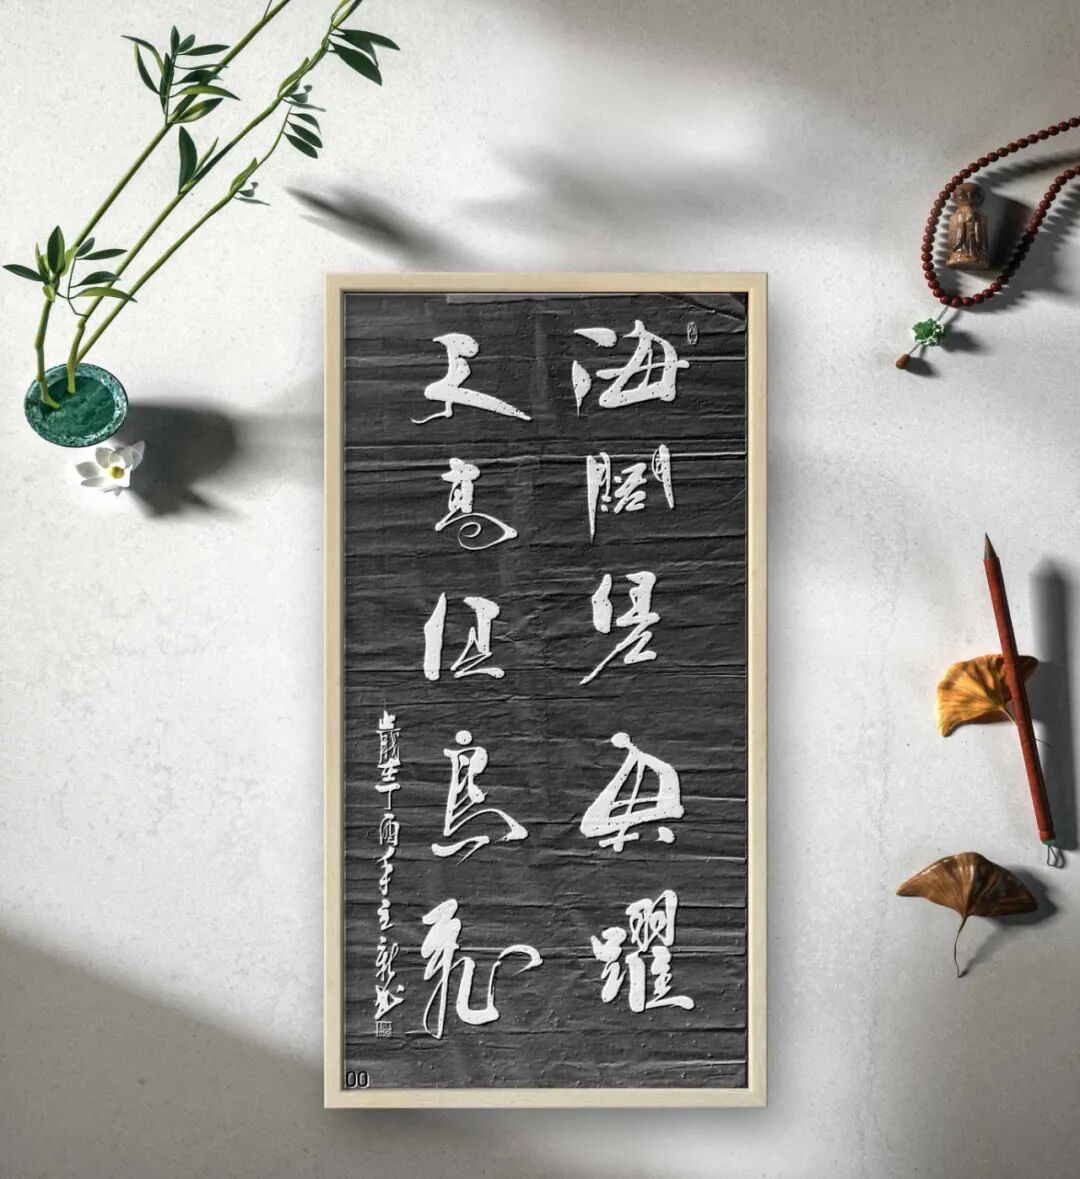 海闊凭魚躍
天高任鳥飛
歲在丁酉年立新书
00